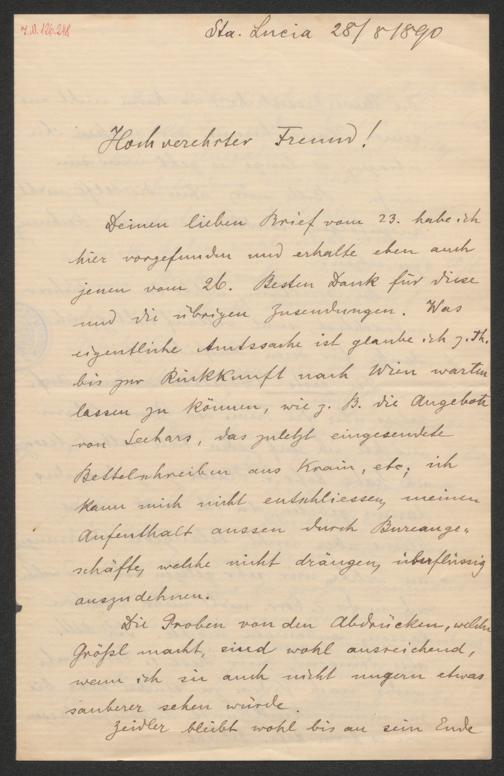 I.N. 126.248
Sta. Lucia 28/8 1890
Hochverehrter Freund!
Deinen lieben Brief vom 23. habe ich
hier vorgefunden und erhalte eben auch
jenen vom 26. Besten Dank für diese
und die übrigen Zusendungen. Was
eigentliche Amtssache ist glaube ich z. Th.
bis zur Rückkunft nach Wien warten
lassen zu können, wie z. B. die Angebote
von das zuletzt eingesendete
Bettelschreiben aus Krain, etc; ich
kann mich nicht entschliessen, meinen
Aufenthalt aussen durch Bureauge-
schäfte, welche nicht drängen, überflüssig
auszudehnen.
Die Proben von den Abdrücken, welche
Größl macht, sind wohl ausreichend,
wenn ich sie auch nicht ungern etwas
sauberer sehen würde.
Zeidler bleibt wohl bis an sein Ende